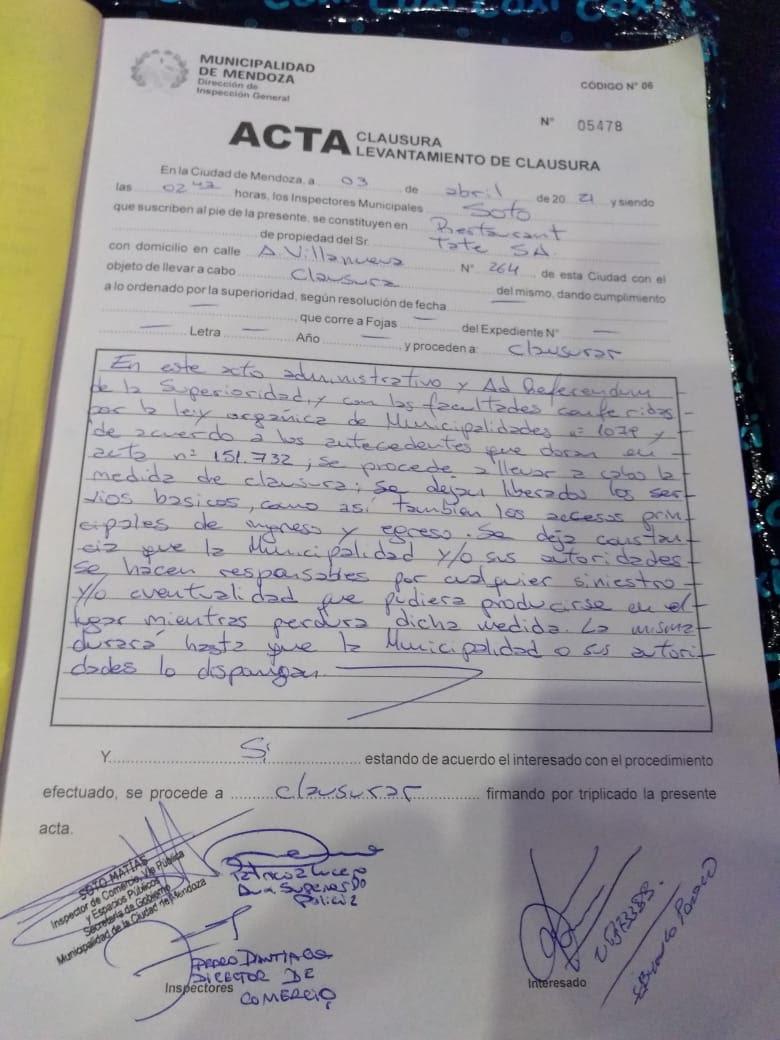 MUNICIPALIDAD
DE MENDOZA
Dirección de
Inspección General
CÓDIGO N° 06
N° 05478
ACTA CLAUSURA
LEVANTAMIENTO DE CLAUSURA
En la Ciudad de Mendoza, a 03 de abril de 20 21 y siendo
las 02 42 horas, los Inspectores Municipales Soto
que suscriben al pie de la presente, se constituyen en Restaurant
de propiedad del Sr. Tate SA.
con domicilio en calle A. Villanueva N° 264 de esta Ciudad con el
objeto de llevar a cabo Clausura del mismo, dando cumplimiento
a lo ordenado por la superioridad, según resolución de fecha —
— , que corre a Fojas — del Expediente N° —
— Letra — Año — y proceden a: clausurar
En este acto administrativo y Ad Referendum
de la Superioridad, y con las facultades conferidas
por la ley orgánica de Municipalidades n° 1079 y
de acuerdo a los antecedentes que obran en
acta n° 151.732, se procede a llevar a cabo la
medida de clausura; se dejan liberados los ser-
vios basicos, como así también los accesos prin-
cipales de ingreso y egreso. Se deja constan-
cia que la Municipalidad y/o sus autoridades
se hacen responsables por cualquier siniestro
y/o eventualidad que pudiera producirse en el
lugar mientras perdura dicha medida. La misma
durará hasta que la Municipalidad o sus autori-
dades lo dispongan.
Y Si estando de acuerdo el interesado con el procedimiento
efectuado, se procede a clausurar firmando por triplicado la presente
acta.
SOTO MATÍAS
Inspector de Comercio, Vía Pública
y Espacios Públicos
Secretaría de Gobierno
Municipalidad de la Ciudad de Mendoza
Policia
PEDRO
DIRECTOR DE
COMERCIO
Inspectores
Interesado